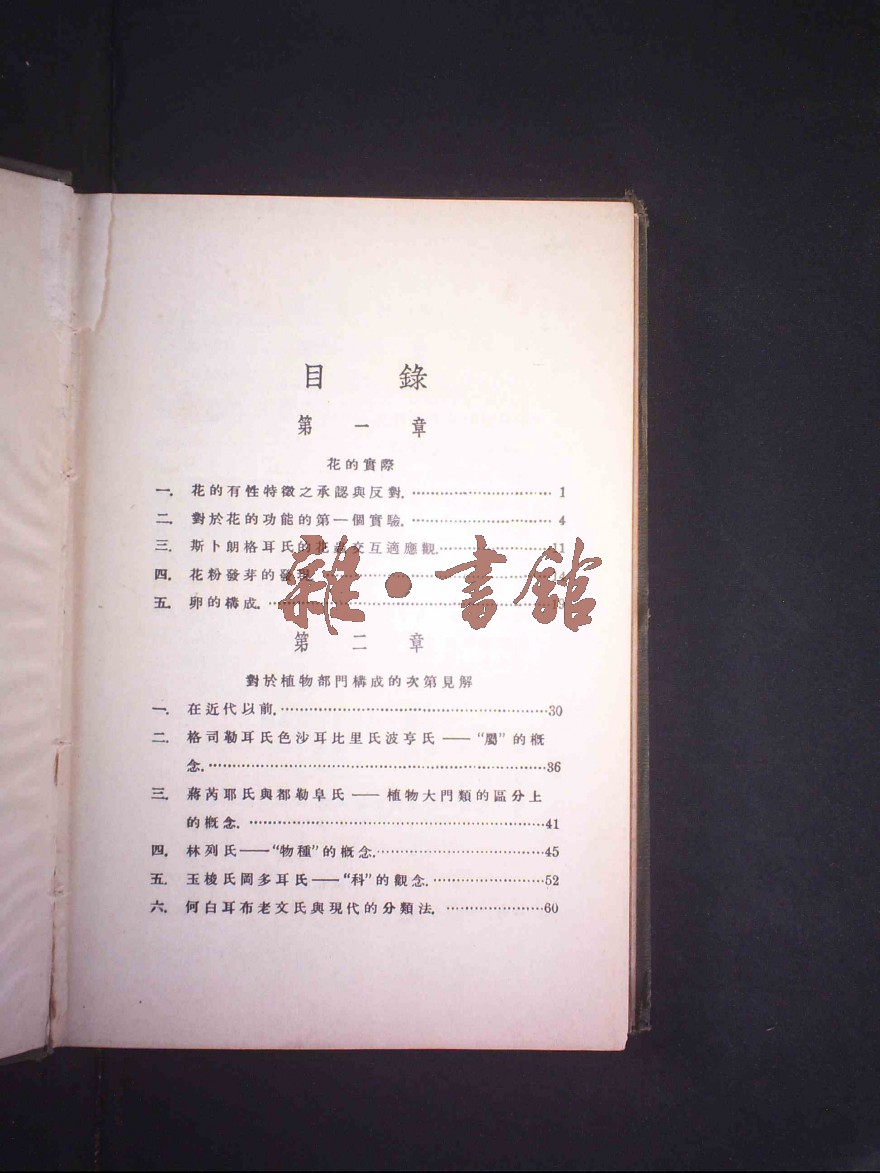 目錄
第一章
花的實際
一. 花的有性特徵之承認與反對. 1
二. 對於花的功能的第一個實驗. 4
三. 斯卜朗格耳氏的花蟲交互適應觀. 11
四. 花粉發芽的發現. 14
五. 卵的構成. 19
雜·書館
第二章
對於植物部門構成的次第見解
一. 在近代以前. 30
二. 格司勒耳氏色沙耳比里氏波亨氏——“屬”的概
念. 36
三. 蔣芮耶氏與都勒阜氏——植物大門類的區分上
的概念. 41
四. 林列氏——“物種”的概念. 45
五. 玉梭氏岡多耳氏——“科”的觀念. 52
六. 何白耳布老文氏與現代的分類法. 60